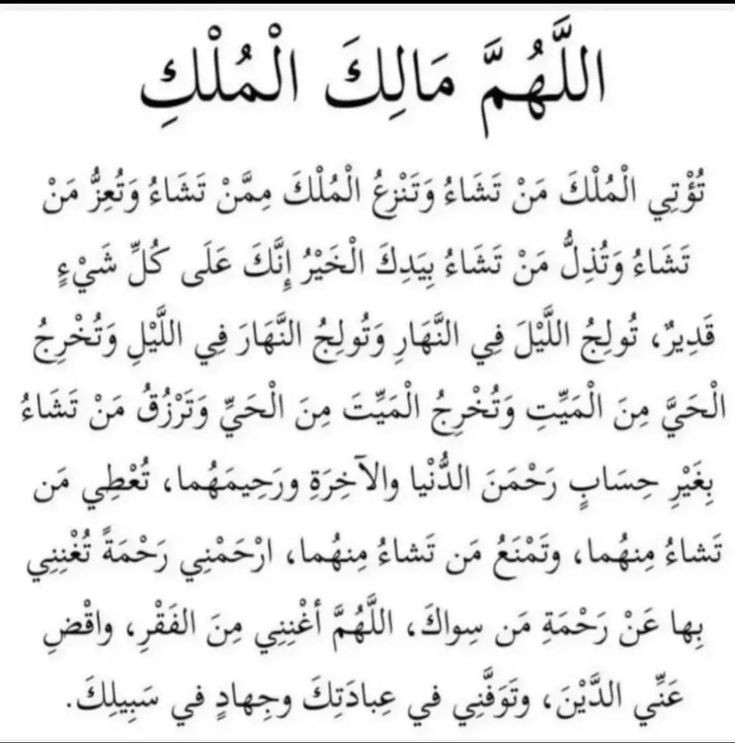 اللَّهُمَّ مَالِكَ الْمُلْكِ
تُؤْتِي الْمُلْكَ مَنْ تَشَاءُ وَتَنْزِعُ الْمُلْكَ مِمَّنْ تَشَاءُ وَتُعِزُّ مَنْ
تَشَاءُ وَتُذِلُّ مَنْ تَشَاءُ بِيَدِكَ الْخَيْرُ إِنَّكَ عَلَى كُلِّ شَيْءٍ
قَدِيرٌ، تُولِجُ اللَّيْلَ فِي النَّهَارِ وَتُولِجُ النَّهَارَ فِي اللَّيْلِ وَتُخْرِجُ
الْحَيَّ مِنَ الْمَيِّتِ وَتُخْرِجُ الْمَيِّتَ مِنَ الْحَيِّ وَتَرْزُقُ مَنْ تَشَاءُ
بِغَيْرِ حِسَابٍ رَحْمَنَ الدُّنْيا والآخِرَةِ ورَحِيمَهُما، تُعْطِي مَن
تَشاءُ مِنهُما، وتَمْنَعُ مَن تَشاءُ مِنهُما، ارْحَمْنِي رَحْمَةً تُغْنِنِي
بِها عَنْ رَحْمَةِ مَن سِواكَ، اللَّهُمَّ أغْنِنِي مِنَ الفَقْرِ، واقْضِ
عَنِّي الدَّيْنَ، وتَوَفَّنِي في عِبادَتِكَ وجِهادٍ في سَبِيلِكَ.